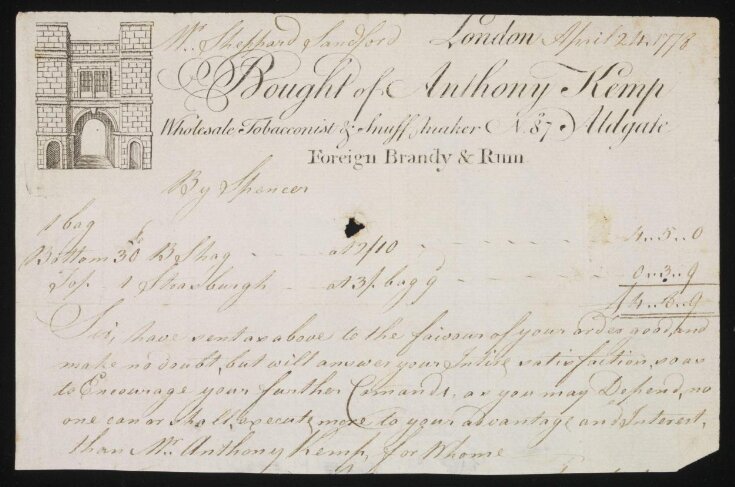 Mr. Sheppard Sandford London April 24. 1778
Bought of Anthony Kemp
Wholesale Tobacconist & Snuff maker N. 87 Aldgate
Foreign Brandy & Rum
By Spencer
1 bag
Bottom 30 B Shag at 2/10 4..5..0
Top 1 Strasburgh at 3/. bag 9 0..3..9
£4..8..9
Sir, have sent as above to the faivour of your order good, and
make no doubt, but will answer your Intire satisfaction, so as
to Encourage your further Comands, as you may Depend, no
one can or shall, execute more to your advantage and Interest,
than Mr. Anthony Kemp, for Whome